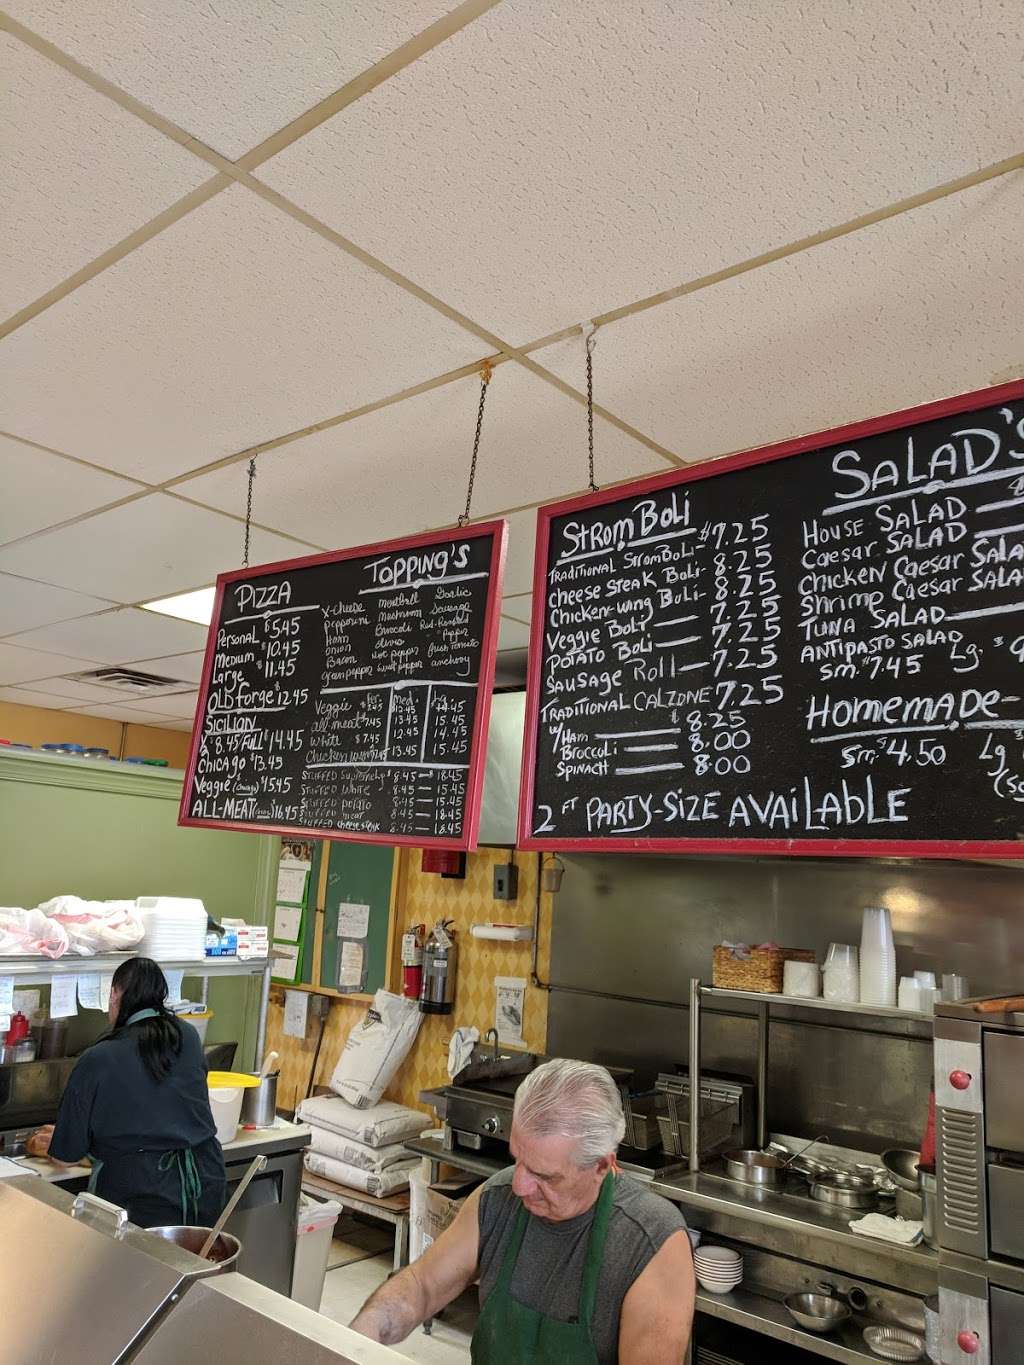 PIZZA
Personal $5.45
Medium $10.45
Large $11.45
OLD forge $12.45
SICILIAN
½ $8.45/FULL $14.45
Chicago $13.45
Veggie (Chicago) $15.45
ALL-MEAT $16.45
TOPPING'S
X-cheese meatball Garlic
pepperoni Mushroom Sausage
Ham Broccoli Red-Roasted
onion olives Pepper
Bacon Hot pepper fresh Tomato
green pepper sweet pepper anchovy
Per. Med. Lg.
Veggie 12.45 14.45
all meat $7.45 13.45 15.45
White $7.45 12.45 14.45
Chicken wing 7.45 13.45 15.45
STUFFED Supreme $8.45 — $18.45
STUFFED White 8.45 — 15.45
STUFFED potato 8.45 — 15.45
STUFFED meat 8.45 — 18.45
STUFFED cheesesteak 8.45 — 18.45
StromBoli
TRADITIONAL StromBoli - $7.25
cheese STEAK Boli - 8.25
Chicken-wing Boli - 8.25
Veggie Boli — 7.25
POTATO Boli — 7.25
SAUSAGE Roll — 7.25
TRADITIONAL CALZONE 7.25
w/ Ham — $8.25
Broccoli — 8.00
SPINACH — 8.00
2 FT PARTY-SIZE AVAILABLE
SALAD'S
HOUSE SALAD
Caesar SALAD
CHICKEN Caesar
Shrimp Caesar
TUNA SALAD
ANTIPASTO SALAD
Sm. $7.45 Lg. $
HOMEMADE-
Sm. $4.50 Lg